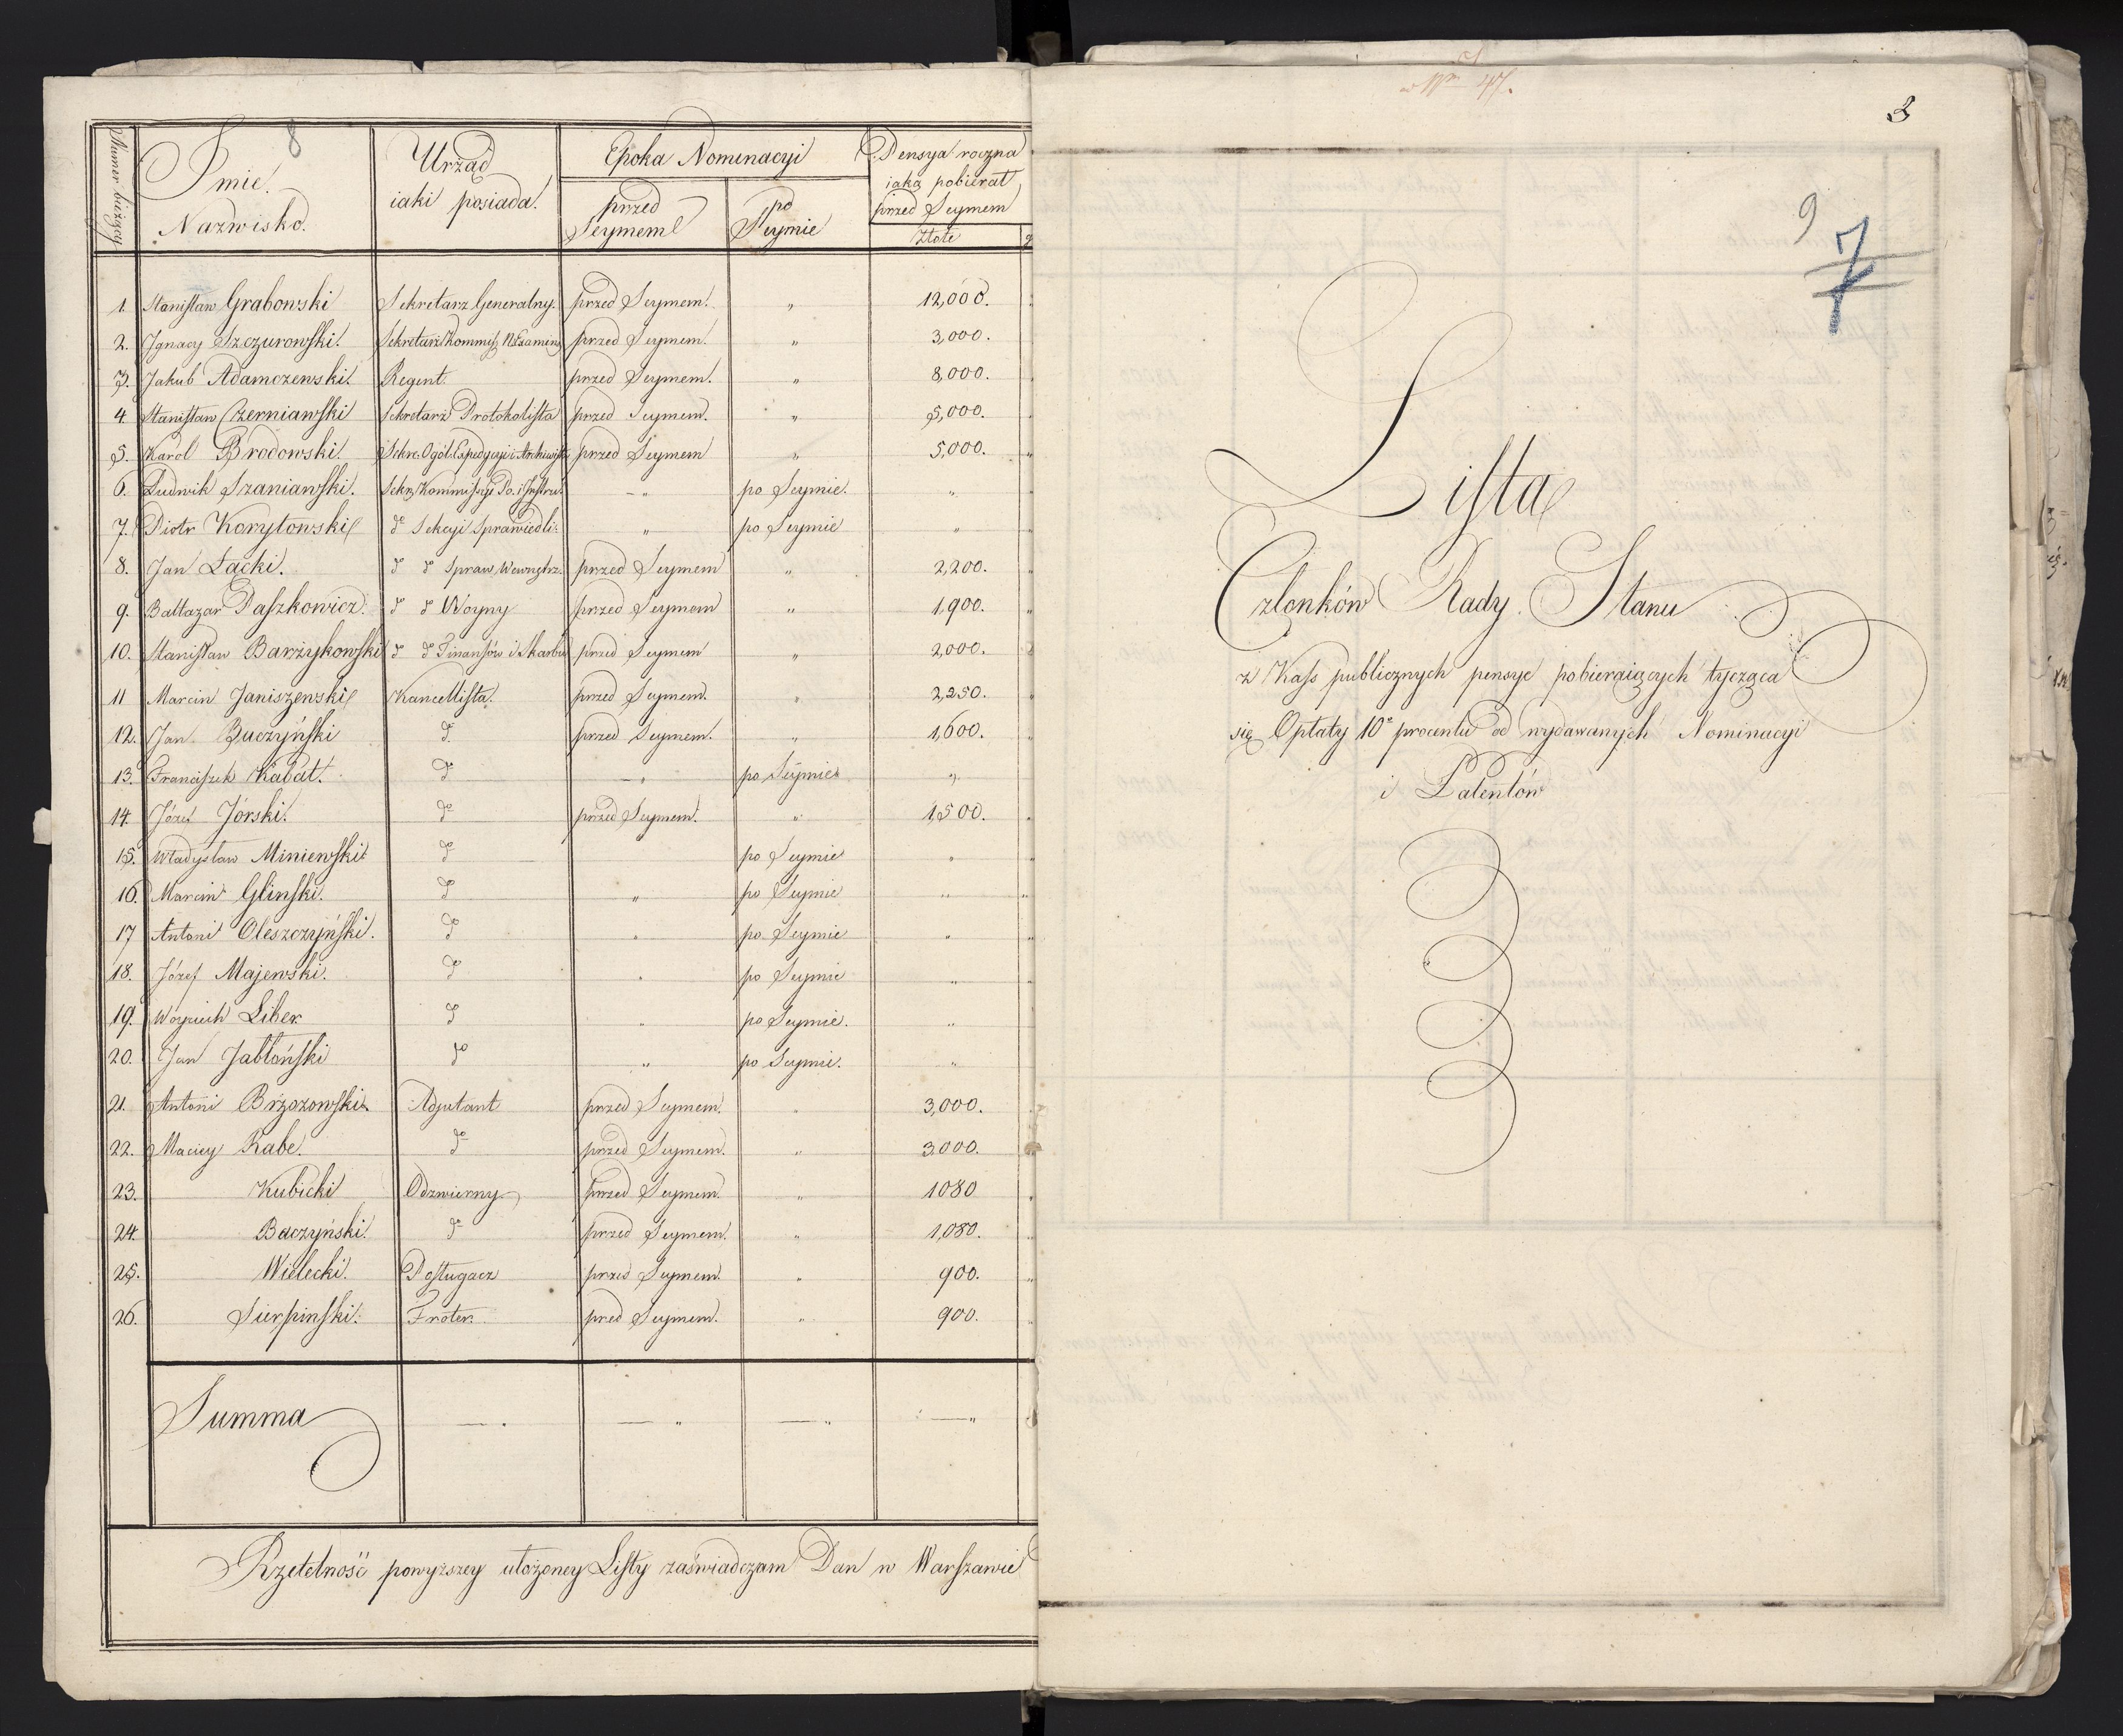 8
Numer bieżący
Imie.
Nazwisko.
Urząd
iaki posiada.
Epoka Nominacyi
przed
Seymem
po
Seymie
Pensya roczna
iaką pobierał
przed Seymem
Złote
g
1. Stanisław Grabowski Sekretarz Generalny. przed Seymem. „ 12,000.
2. Ignacy Szczurowski. Sekretarz Kommis. N. Examin. przed Seymem. „ 3,000.
3. Jakub Adamczewski. Regent. przed Seymem. „ 8,000.
4. Stanisław Czerniawski Sekretarz Protokolista przed Seymem. „ 5,000.
5. Karol Brodowski. Sekre. Ogól. Expedycyi i Archiwista przed Seymem „ 5,000.
6. Ludwik Szaniawski. Sekr. Kommissyi Po. i Instru. — „ po Seymie. „
7. Piotr Korytowski do Sekcyi Sprawiedli: „ po Seymie „
8. Jan Łacki. do do Spraw Wewnętrz. przed Seymem „ 2,200.
9. Baltazar Paszkowicz. do do Woyny przed Seymem „ 1,900.
10. Stanisław Barzykowski do do Finansów i Skarbu przed Seymem „ 2,000.
11 Marcin Janiszewski Kancellista. przed Seymem. „ 2,250.
12. Jan Buczyński do przed Seymem. „ 1,600.
13. Franciszek Kabat. do — „ po Seymie „
14. Józef Jórski. do przed Seymem. „ 1,500.
15. Władysław Miniewski do po Seymie „
16. Marcin Glinski. do „ po Seymie „
17 Antoni Oleszczyński. do „ po Seymie „
18. Józef Majewski. do „ po Seymie „
19. Woyciech Liber do „ po Seymie. „
20. Jan Jabłoński do „ po Seymie. „
21. Antoni Brzozowski. Adjutant przed Seymem. „ 3,000.
22. Maciey Rabe. do przed Seymem. „ 3,000.
23. Kubicki Odzwierny przed Seymem. „ 1080
24. Baczyński. do przed Seymem. „ 1,080.
25. Wielecki. Posługacz przed Seymem. „ 900.
26. Sierpinski. Froter. przed Seymem. „ 900.
Summa — . — „ — „ — „
Rzetelność powyższey ułożoney Listy zaświadczam Dan w Warszawie
3
9
7
Lista
Członków Rady Stanu
z Kass publicznych pensye pobieraiących tycząca
się Opłaty 10o procentu od wydawanych Nominacyi
i Patentów